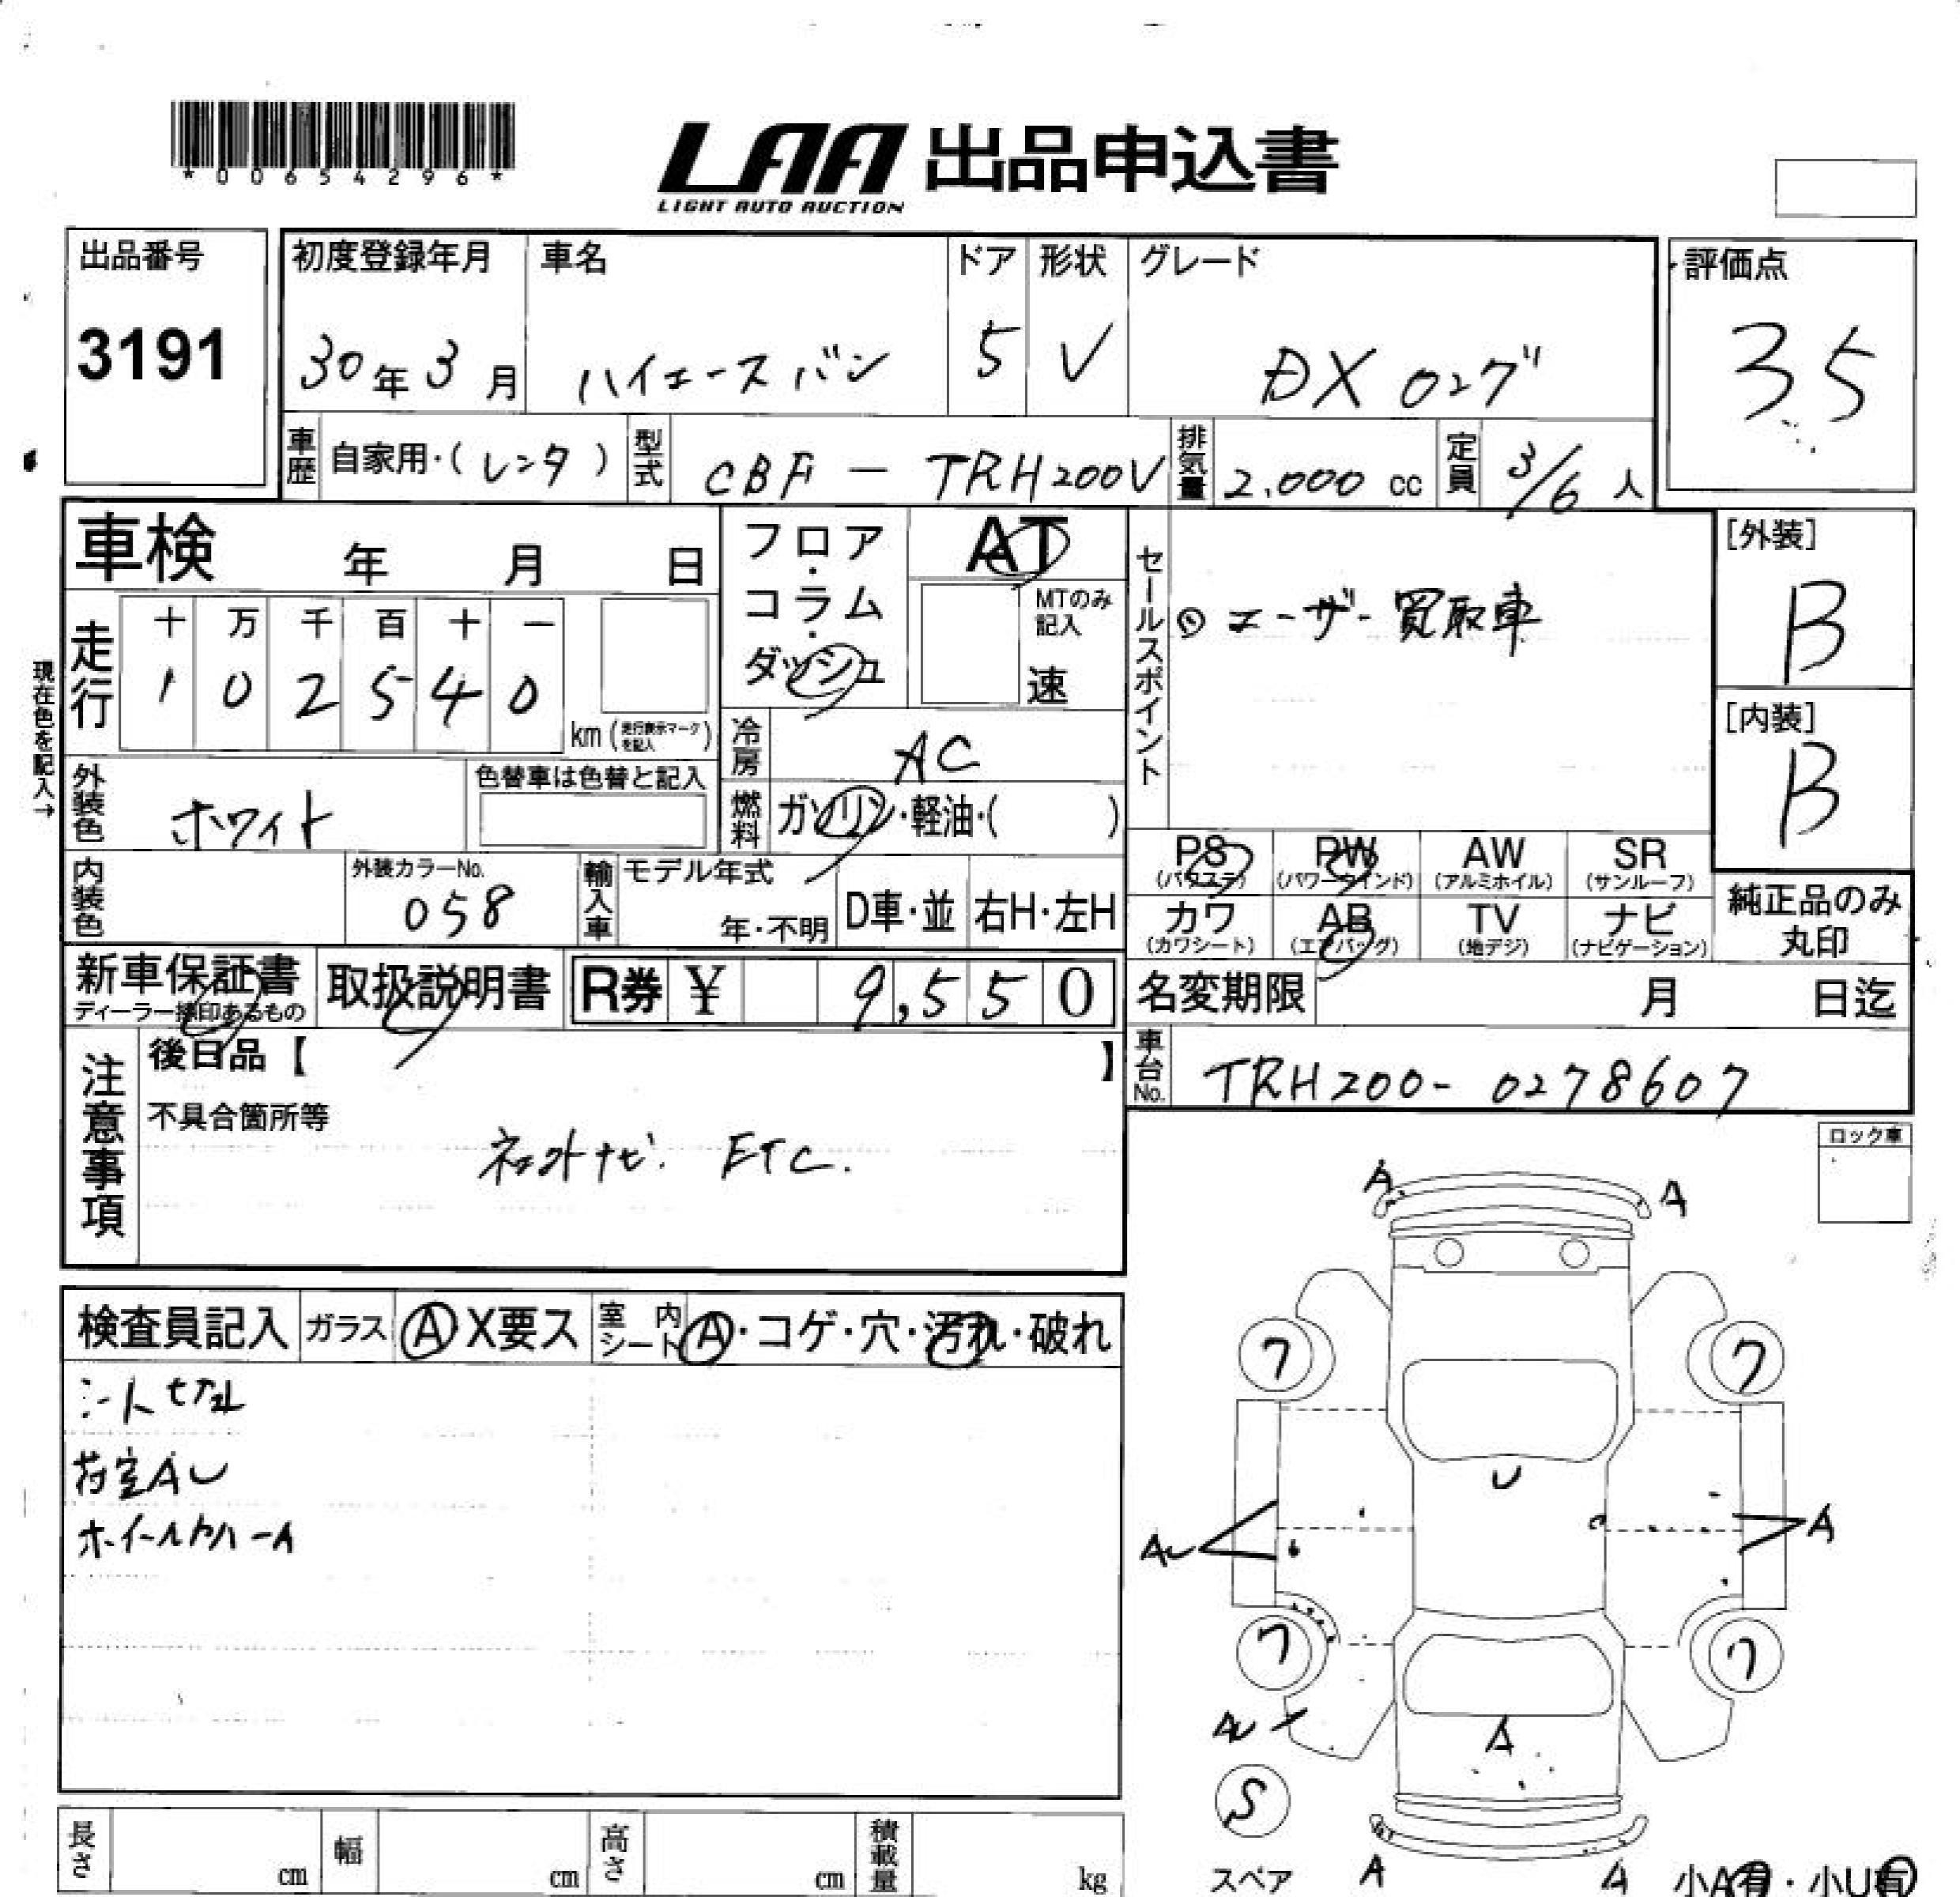 *00654296*
LAA 出品申込書
LIGHT AUTO AUCTION
出品番号
3191
初度登録年月
30年3月
車名
ハイエース バン
ドア
5
形状
V
グレード
DX ロング
評価点
3.5
車歴 自家用・(レンタ)
型式 CBF - TRH200V
排気量 2,000 cc
定員 3/6 人
車検 年 月 日
フロア・コラム・ダッシュ
AT
MTのみ記入
速
セールスポイント
① ユーザー買取車
[外装]
B
[内装]
B
現在色を記入→
走行
十 万 千 百 十 一
1 0 2 5 4 0
km (走行表示マークを記入)
冷房 AC
燃料 ガソリン・軽油・( )
外装色 ホワイト
色替車は色替と記入
内装色
外装カラーNo.
058
輸入車
モデル年式
年・不明
D車・並
右H・左H
PS (パワステ)
PW (パワーウインド)
AW (アルミホイル)
SR (サンルーフ)
カワ (カワシート)
AB (エアバッグ)
TV (地デジ)
ナビ (ナビゲーション)
純正品のみ丸印
新車保証書
ディーラー捺印あるもの
取扱説明書
R券 ¥ 9,550
名変期限 月 日迄
車台No. TRH200-0278607
注意事項
後日品【 】
不具合箇所等
ナビ. ETC.
ロック車
検査員記入
ガラス A X要ス
室内シート A・コゲ・穴・汚れ・破れ
荷室AU
A A
ワ ワ
U
AU A
ワ ワ
AU
A
S
スペア
A A
小A有・小U有
長さ cm
幅 cm
高さ cm
積載量 kg